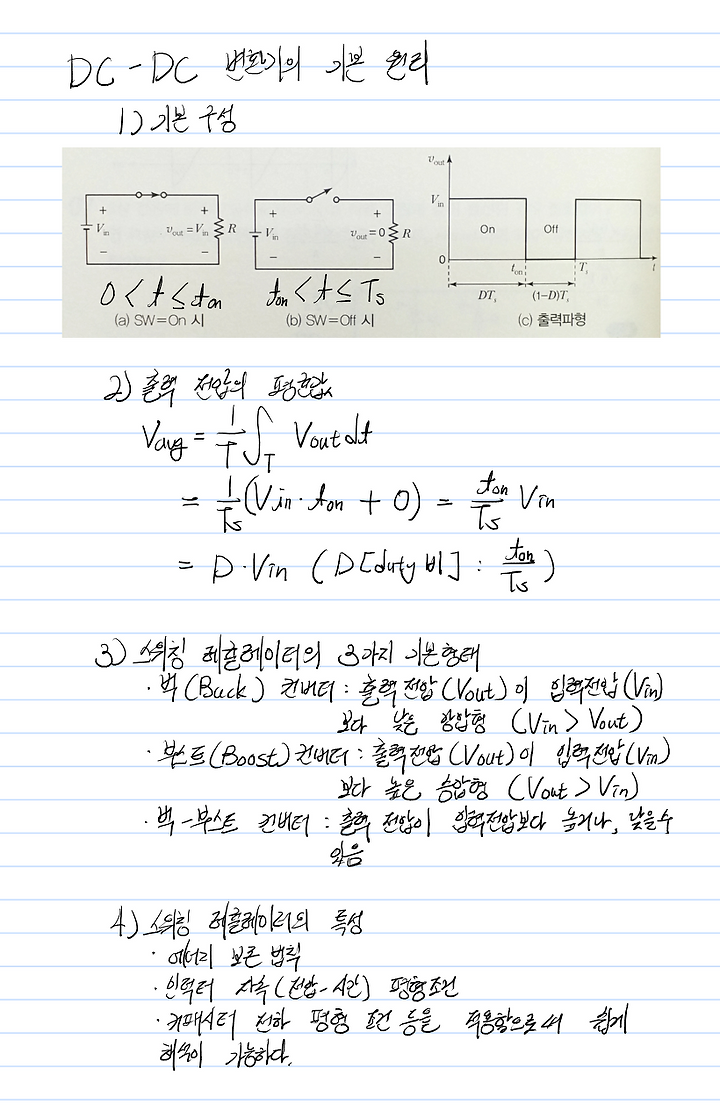 DC - DC 변환기의 기본 원리
1) 기본 구성
Vin + - vout = Vin + - R
Vin + - vout = 0 + - R
vout
Vin
On Off
0 ton Ts t
DTs (1-D)Ts
0 < t ≤ ton
ton < t ≤ Ts
(a) SW=On 시 (b) SW=Off 시 (c) 출력파형
2) 출력 전압의 평균값
Vavg = 1/T ∫T Vout dt
= 1/Ts (Vin · ton + 0) = ton/Ts Vin
= D · Vin ( D [duty 비] : ton/Ts )
3) 스위칭 레귤레이터의 3가지 기본형태
· 벅 (Buck) 컨버터 : 출력전압 (Vout) 이 입력전압 (Vin)
보다 낮은 강압형 (Vin > Vout)
· 부스트 (Boost) 컨버터 : 출력전압 (Vout) 이 입력전압 (Vin)
보다 높은 승압형 (Vout > Vin)
· 벅 - 부스트 컨버터 : 출력 전압이 입력전압보다 높거나, 낮을수
있음
4) 스위칭 레귤레이터의 특성
· 에너지 보존 법칙
· 인덕터 자속 (전압 - 시간) 평형조건
· 커패시터 전하 평형 조건 등을 적용함으로써 쉽게
해석이 가능하다.